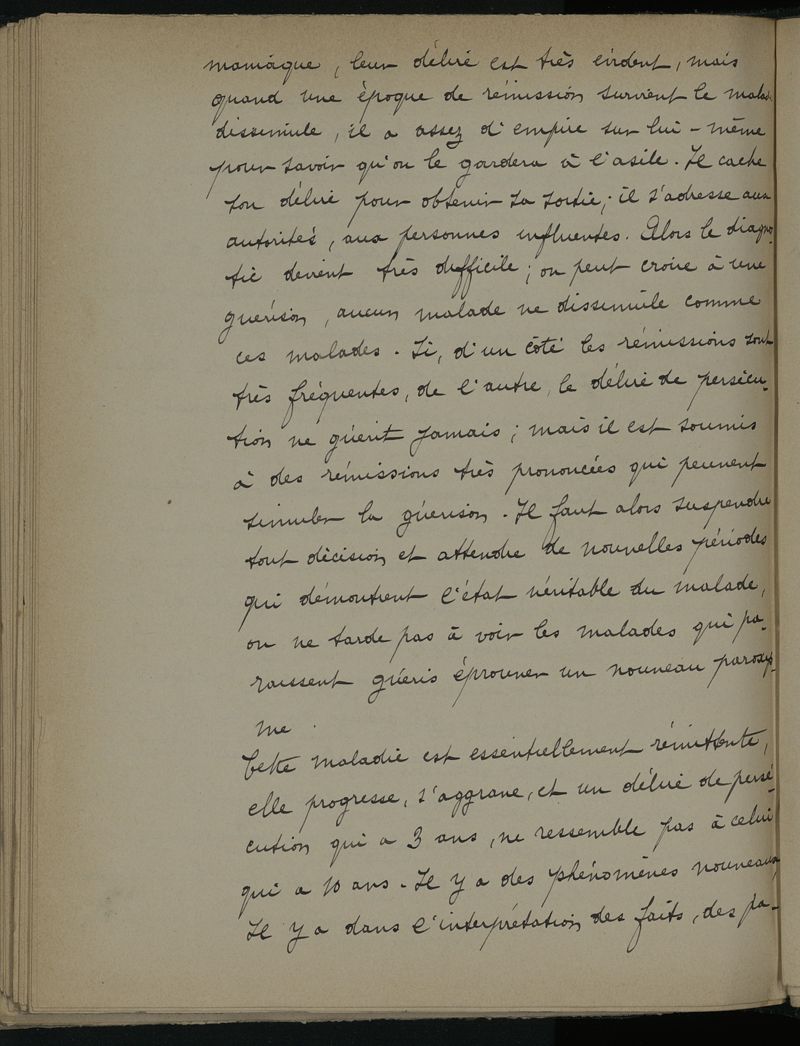 maniaque, leur délire est très évident, mais
quand une époque de rémission survient le malade
dissimule, il a assez d'empire sur lui-même
pour savoir qu'on le gardera à l'asile. Il cache
son délire pour obtenir sa sortie; il s'adresse aux
autorités, aux personnes influentes. Alors le diagnos-
tic devient très difficile; on peut croire à une
guérison, aucun malade ne dissimule comme
ces malades. Si, d'un côté les rémissions sont
très fréquentes, de l'autre, le délire de persécu-
tion ne guérit jamais; mais il est soumis
à des rémissions très prononcées qui peuvent
simuler la guérison. Il faut alors suspendre
tout décision et attendre de nouvelles périodes
qui démontrent l'état véritable du malade,
on ne tarde pas à voir les malades qui pa-
raissent guéris éprouver un nouveau paroxys-
me.
Cette maladie est essentiellement rémittente,
elle progresse, s'aggrave, et un délire de persé-
cution qui a 3 ans, ne ressemble pas à celui
qui a 10 ans. Il y a des phénomènes nouveaux,
Il y a dans l'interprétation des faits, des pa-